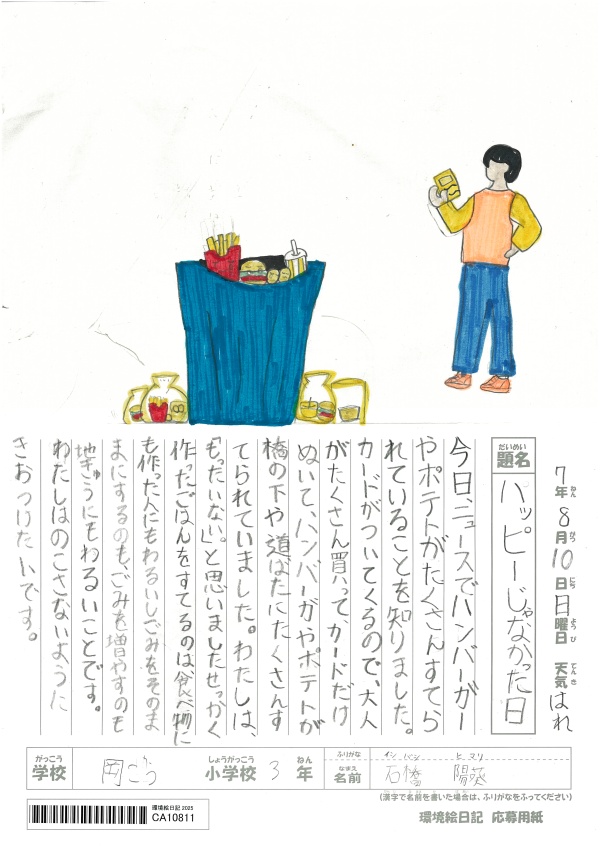 7年ねん8月がつ10日にち日曜日ようび 天気てんきはれ
だいめい
題名
ハッピーじゃなかった日
今日、ニュースでハンバーガー
やポテトがたくさんすてら
れていることを知りました。
カードがついてくるので、大人
がたくさん買って、カードだけ
ぬいて、ハンバーガやポテトが
橋の下や道ばたにたくさんす
てられていました。わたしは、
「もったいない」。と思いましたせっかく
作ったごはんをすてるのは、食べ物に
も作った人にもわるいしごみをそのま
まにするのも、ごみを増やすのも
地きゅうにもわるいことです。
わたしはのこさないように
きおつけたいです。
がっこう
学校
しょうがっこう
小学校
3
ねん
年
ふりがな
なまえ
名前
石橋 陽葵
(漢字で名前を書いた場合は、ふりがなをふってください)
環境絵日記 2025
CA10811
環境絵日記 応募用紙